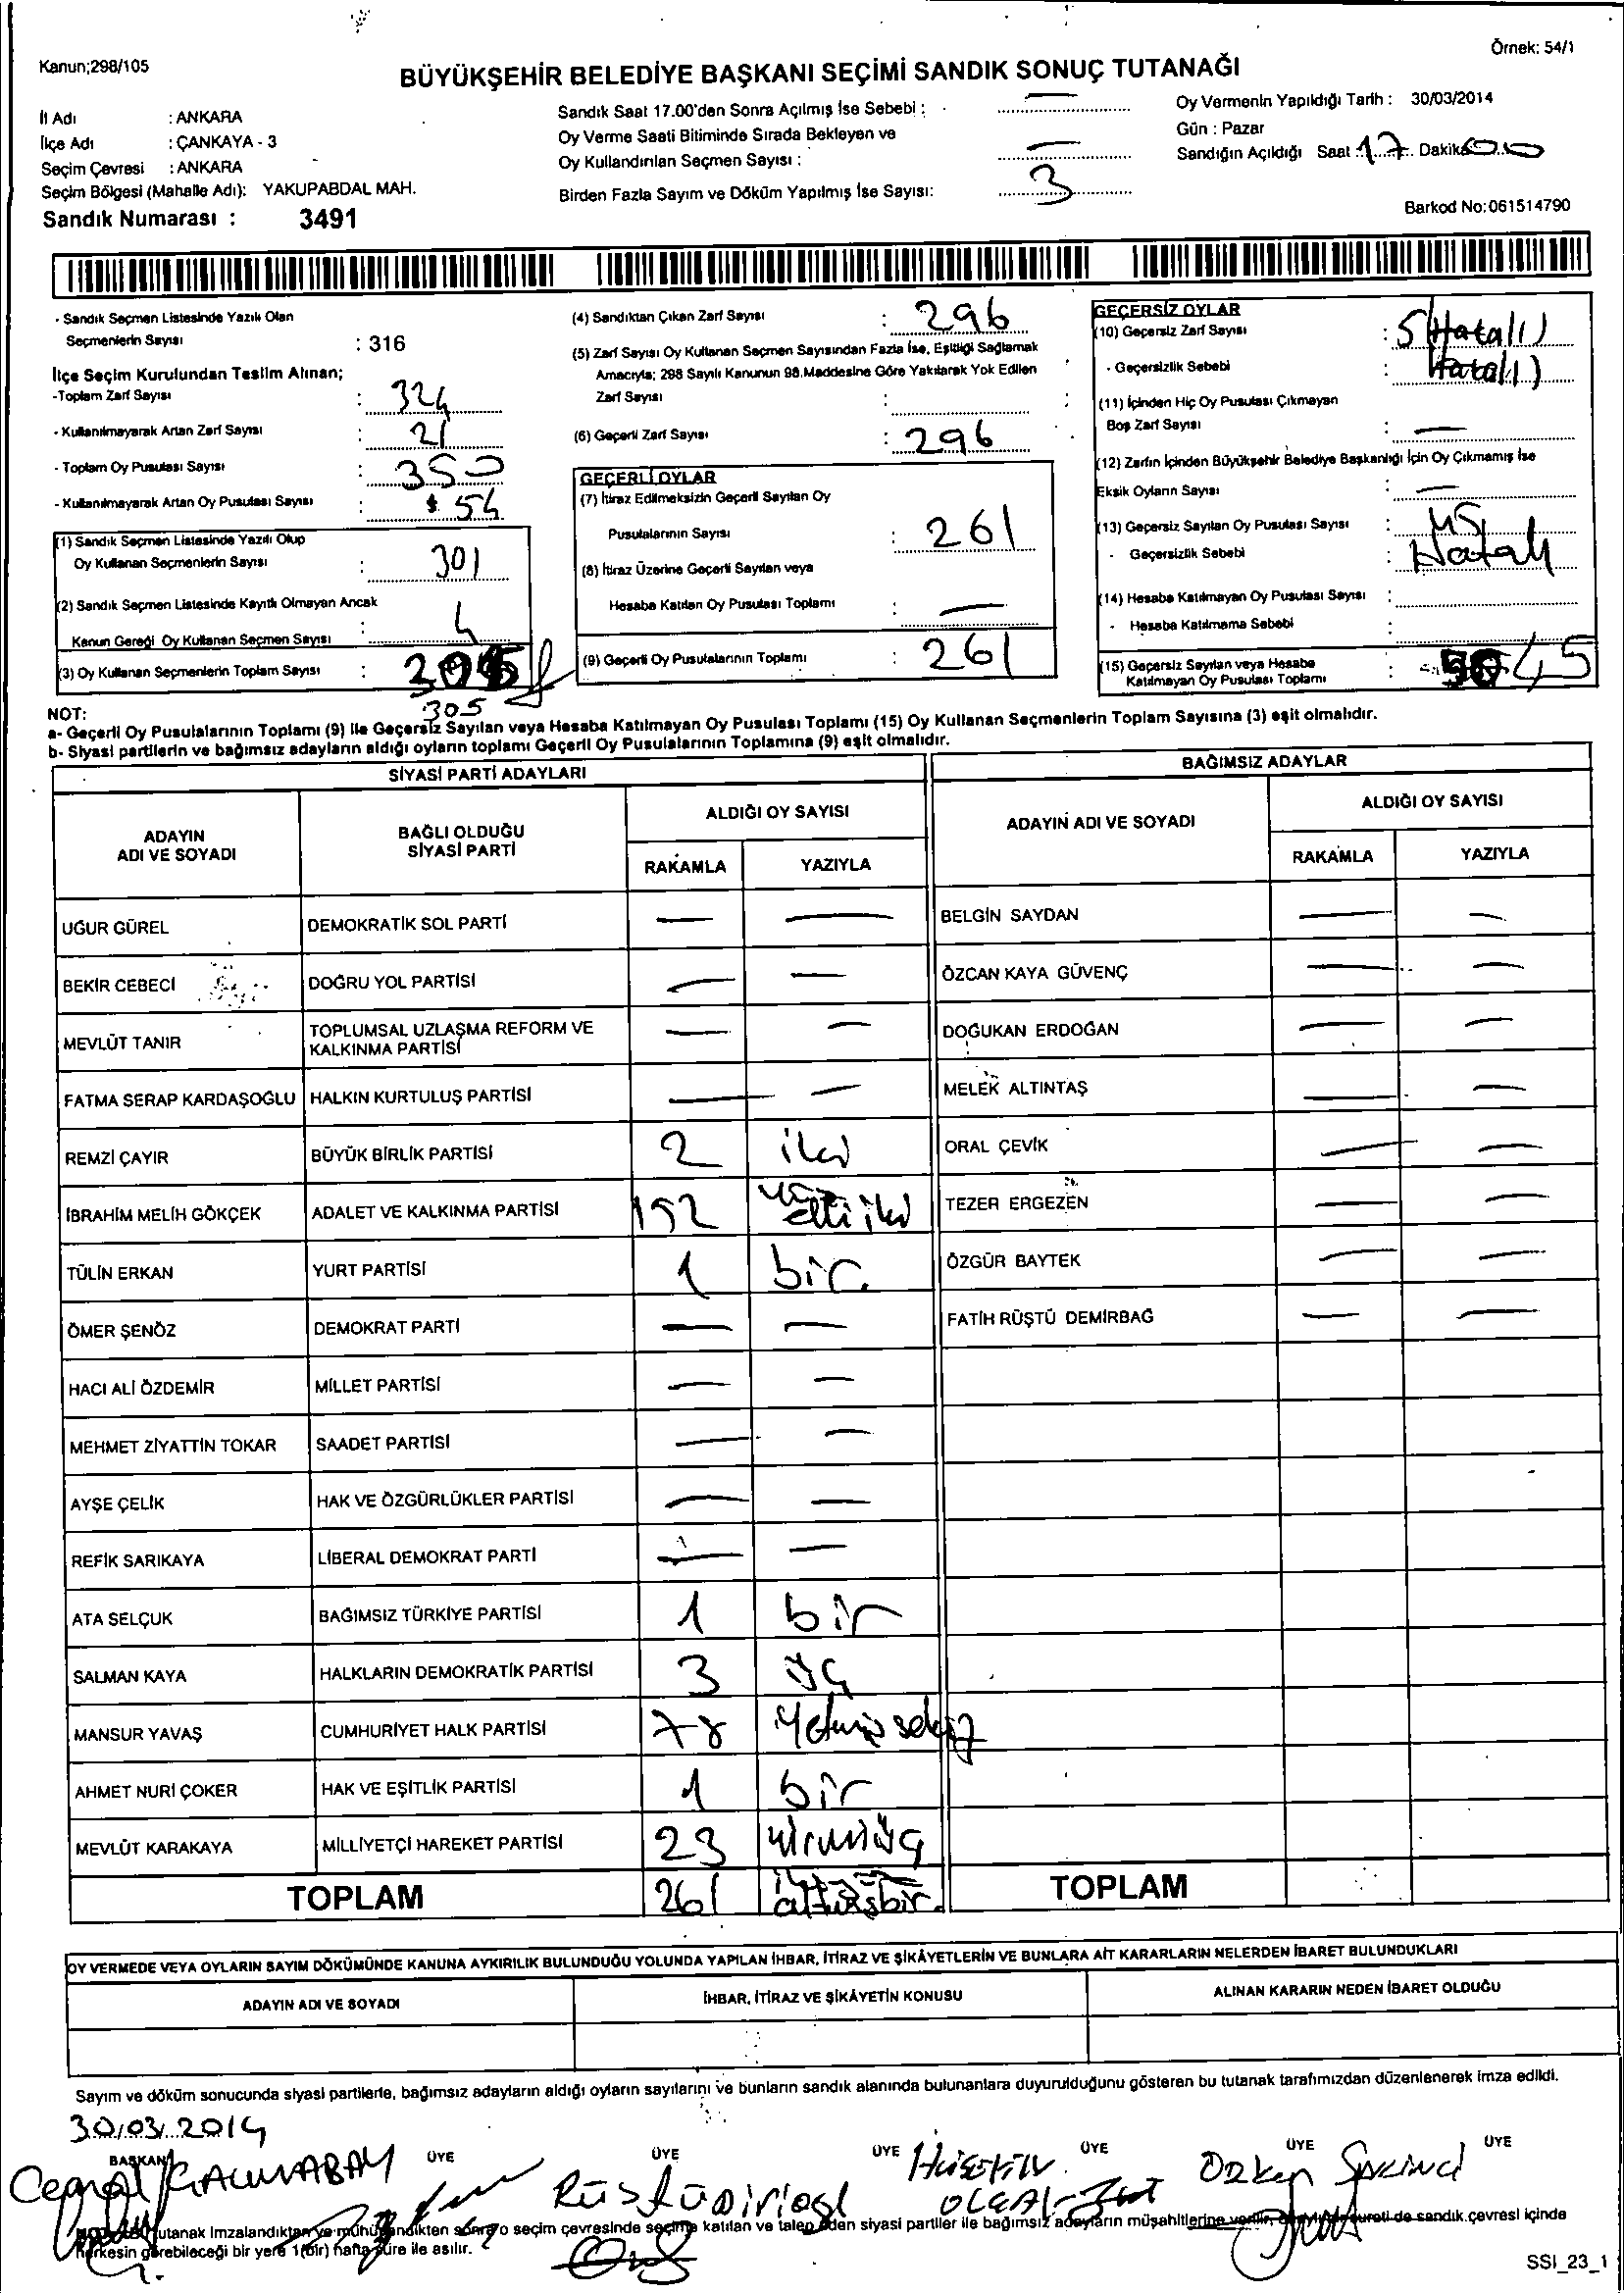 Örnek: 54/1
Kanun;298/105
BÜYÜKŞEHİR BELEDİYE BAŞKANI SEÇİMİ SANDIK SONUÇ TUTANAĞI
İl Adı : ANKARA
İlçe Adı : ÇANKAYA - 3
Seçim Çevresi : ANKARA
Seçim Bölgesi (Mahalle Adı): YAKUPABDAL MAH.
Sandık Numarası : 3491
Sandık Saat 17.00'den Sonra Açılmış İse Sebebi : —
Oy Verme Saati Bitiminde Sırada Bekleyen ve
Oy Kullandırılan Seçmen Sayısı : —
Birden Fazla Sayım ve Döküm Yapılmış İse Sayısı: 3
Oy Vermenin Yapıldığı Tarih : 30/03/2014
Gün : Pazar
Sandığın Açıldığı Saat : 17 Dakika 00
Barkod No:061514790
- Sandık Seçmen Listesinde Yazılı Olan
Seçmenlerin Sayısı : 316
İlçe Seçim Kurulundan Teslim Alınan;
-Toplam Zarf Sayısı : 324
- Kullanılmayarak Artan Zarf Sayısı : 21
- Toplam Oy Pusulası Sayısı : 350
- Kullanılmayarak Artan Oy Pusulası Sayısı : 54
(1) Sandık Seçmen Listesinde Yazılı Olup
Oy Kullanan Seçmenlerin Sayısı : 301
(2) Sandık Seçmen Listesinde Kayıtlı Olmayan Ancak
Kanun Gereği Oy Kullanan Seçmen Sayısı : 4
(3) Oy Kullanan Seçmenlerin Toplam Sayısı :
305
(4) Sandıktan Çıkan Zarf Sayısı : 296
(5) Zarf Sayısı Oy Kullanan Seçmen Sayısından Fazla İse, Eşitliği Sağlamak
Amacıyla; 298 Sayılı Kanunun 98.Maddesine Göre Yakılarak Yok Edilen
Zarf Sayısı :
(6) Geçerli Zarf Sayısı : 296
GEÇERLİ OYLAR
(7) İtiraz Edilmeksizin Geçerli Sayılan Oy
Pusulalarının Sayısı : 261
(8) İtiraz Üzerine Geçerli Sayılan veya
Hesaba Katılan Oy Pusulası Toplamı : —
(9) Geçerli Oy Pusulalarının Toplamı : 261
GEÇERSİZ OYLAR
(10) Geçersiz Zarf Sayısı : 5 (Hatalı)
- Geçersizlik Sebebi : Hatalı)
(11) İçinden Hiç Oy Pusulası Çıkmayan
Boş Zarf Sayısı : —
(12) Zarfın İçinden Büyükşehir Belediye Başkanlığı İçin Oy Çıkmamış İse
Eksik Oyların Sayısı : —
(13) Geçersiz Sayılan Oy Pusulası Sayısı : 45
- Geçersizlik Sebebi : Hatalı
(14) Hesaba Katılmayan Oy Pusulası Sayısı :
- Hesaba Katılmama Sebebi :
(15) Geçersiz Sayılan veya Hesaba
Katılmayan Oy Pusulası Toplamı : 50 45
NOT:
a- Geçerli Oy Pusulalarının Toplamı (9) ile Geçersiz Sayılan veya Hesaba Katılmayan Oy Pusulası Toplamı (15) Oy Kullanan Seçmenlerin Toplam Sayısına (3) eşit olmalıdır.
b- Siyasi partilerin ve bağımsız adayların aldığı oyların toplamı Geçerli Oy Pusulalarının Toplamına (9) eşit olmalıdır.
SİYASİ PARTİ ADAYLARI
ADAYIN
ADI VE SOYADI
BAĞLI OLDUĞU
SİYASİ PARTİ
ALDIĞI OY SAYISI
RAKAMLA YAZIYLA
UĞUR GÜREL DEMOKRATİK SOL PARTİ — —
BEKİR CEBECİ DOĞRU YOL PARTİSİ — —
MEVLÜT TANIR TOPLUMSAL UZLAŞMA REFORM VE
KALKINMA PARTİSİ — —
FATMA SERAP KARDAŞOĞLU HALKIN KURTULUŞ PARTİSİ — —
REMZİ ÇAYIR BÜYÜK BİRLİK PARTİSİ 2 iki
İBRAHİM MELİH GÖKÇEK ADALET VE KALKINMA PARTİSİ 152 yüz elli iki
TÜLİN ERKAN YURT PARTİSİ 1 bir.
ÖMER ŞENÖZ DEMOKRAT PARTİ — —
HACI ALİ ÖZDEMİR MİLLET PARTİSİ — —
MEHMET ZİYATTİN TOKAR SAADET PARTİSİ — —
AYŞE ÇELİK HAK VE ÖZGÜRLÜKLER PARTİSİ — —
REFİK SARIKAYA LİBERAL DEMOKRAT PARTİ — —
ATA SELÇUK BAĞIMSIZ TÜRKİYE PARTİSİ 1 bir
SALMAN KAYA HALKLARIN DEMOKRATİK PARTİSİ 3 üç
MANSUR YAVAŞ CUMHURİYET HALK PARTİSİ 78 Yetmiş sekiz
AHMET NURİ ÇOKER HAK VE EŞİTLİK PARTİSİ 1 bir
MEVLÜT KARAKAYA MİLLİYETÇİ HAREKET PARTİSİ 23 yirmiüç
TOPLAM 261 ikiyüz altmışbir.
BAĞIMSIZ ADAYLAR
ADAYIN ADI VE SOYADI
ALDIĞI OY SAYISI
RAKAMLA YAZIYLA
BELGİN SAYDAN — —
ÖZCAN KAYA GÜVENÇ — —
DOĞUKAN ERDOĞAN — —
MELEK ALTINTAŞ — —
ORAL ÇEVİK — —
TEZER ERGEZEN — —
ÖZGÜR BAYTEK — —
FATİH RÜŞTÜ DEMİRBAĞ — —
TOPLAM
OY VERMEDE VEYA OYLARIN SAYIM DÖKÜMÜNDE KANUNA AYKIRILIK BULUNDUĞU YOLUNDA YAPILAN İHBAR, İTİRAZ VE ŞİKÂYETLERİN VE BUNLARA AİT KARARLARIN NELERDEN İBARET BULUNDUKLARI
ADAYIN ADI VE SOYADI İHBAR, İTİRAZ VE ŞİKÂYETİN KONUSU ALINAN KARARIN NEDEN İBARET OLDUĞU
Sayım ve döküm sonucunda siyasi partilerle, bağımsız adayların aldığı oyların sayılarını ve bunların sandık alanında bulunanlara duyurulduğunu gösteren bu tutanak tarafımızdan düzenlenerek imza edildi.
30/03/2014
BAŞKAN ÜYE ÜYE ÜYE ÜYE ÜYE ÜYE
tutanak imzalandıktan ve mühürlendikten sonra o seçim çevresinde seçime katılan ve talep eden siyasi partiler ile bağımsız adayların müşahitlerine verilir, sureti de sandık çevresi içinde
herkesin görebileceği bir yere 1(bir) hafta süre ile asılır.
SSI_23_1